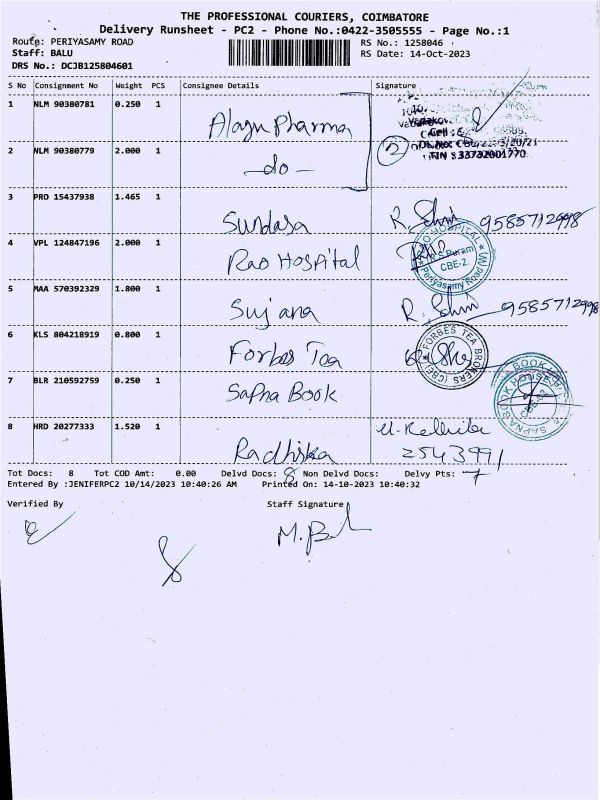 THE PROFESSIONAL COURIERS, COIMBATORE
Delivery Runsheet - PC2 - Phone No.:0422-3505555 - Page No.:1
Route: PERIYASAMY ROAD
RS No.: 1258046
Staff: BALU
RS Date: 14-Oct-2023
DRS No.: DCJB125804601
S No Consignment No Weight PCS Consignee Details Signature
1 NLM 90380781 0.250 1 Alagu Pharma
2 NLM 90380779 2.000 1 -do- 2
TIN : 33732001770
3 PRO 15437938 1.465 1 Sundasa R. 9585712998
4 VPL 124847196 2.000 1 Rao Hospital
RAO HOSPITAL
CBE-2.
Periyasamy Road (W)
5 MAA 570392329 1.800 1 Sujana R. 9585712998
6 KLS 804218919 0.800 1 Forbes Tea
FORBES TEA BROKERS (CBE)
7 BLR 210592759 0.250 1 Sapna Book
SAPNA BOOK HOUSE
CBE-2.
8 HRD 20277333 1.520 1 Radhika
2543991
Tot Docs: 8 Tot COD Amt: 0.00 Delvd Docs: 8 Non Delvd Docs: Delvy Pts: 7
Entered By :JENIFERPC2 10/14/2023 10:40:26 AM Printed On: 14-10-2023 10:40:32
Verified By Staff Signature